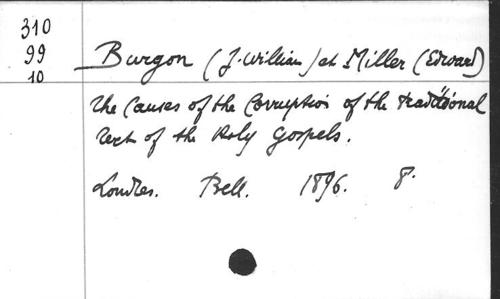 310
99
10
Burgon (J. William) et Miller (Edward)
The Causes of the Corruption of the traditional
text of the Holy Gospels.
Londres. Bell. 1896. 8°.